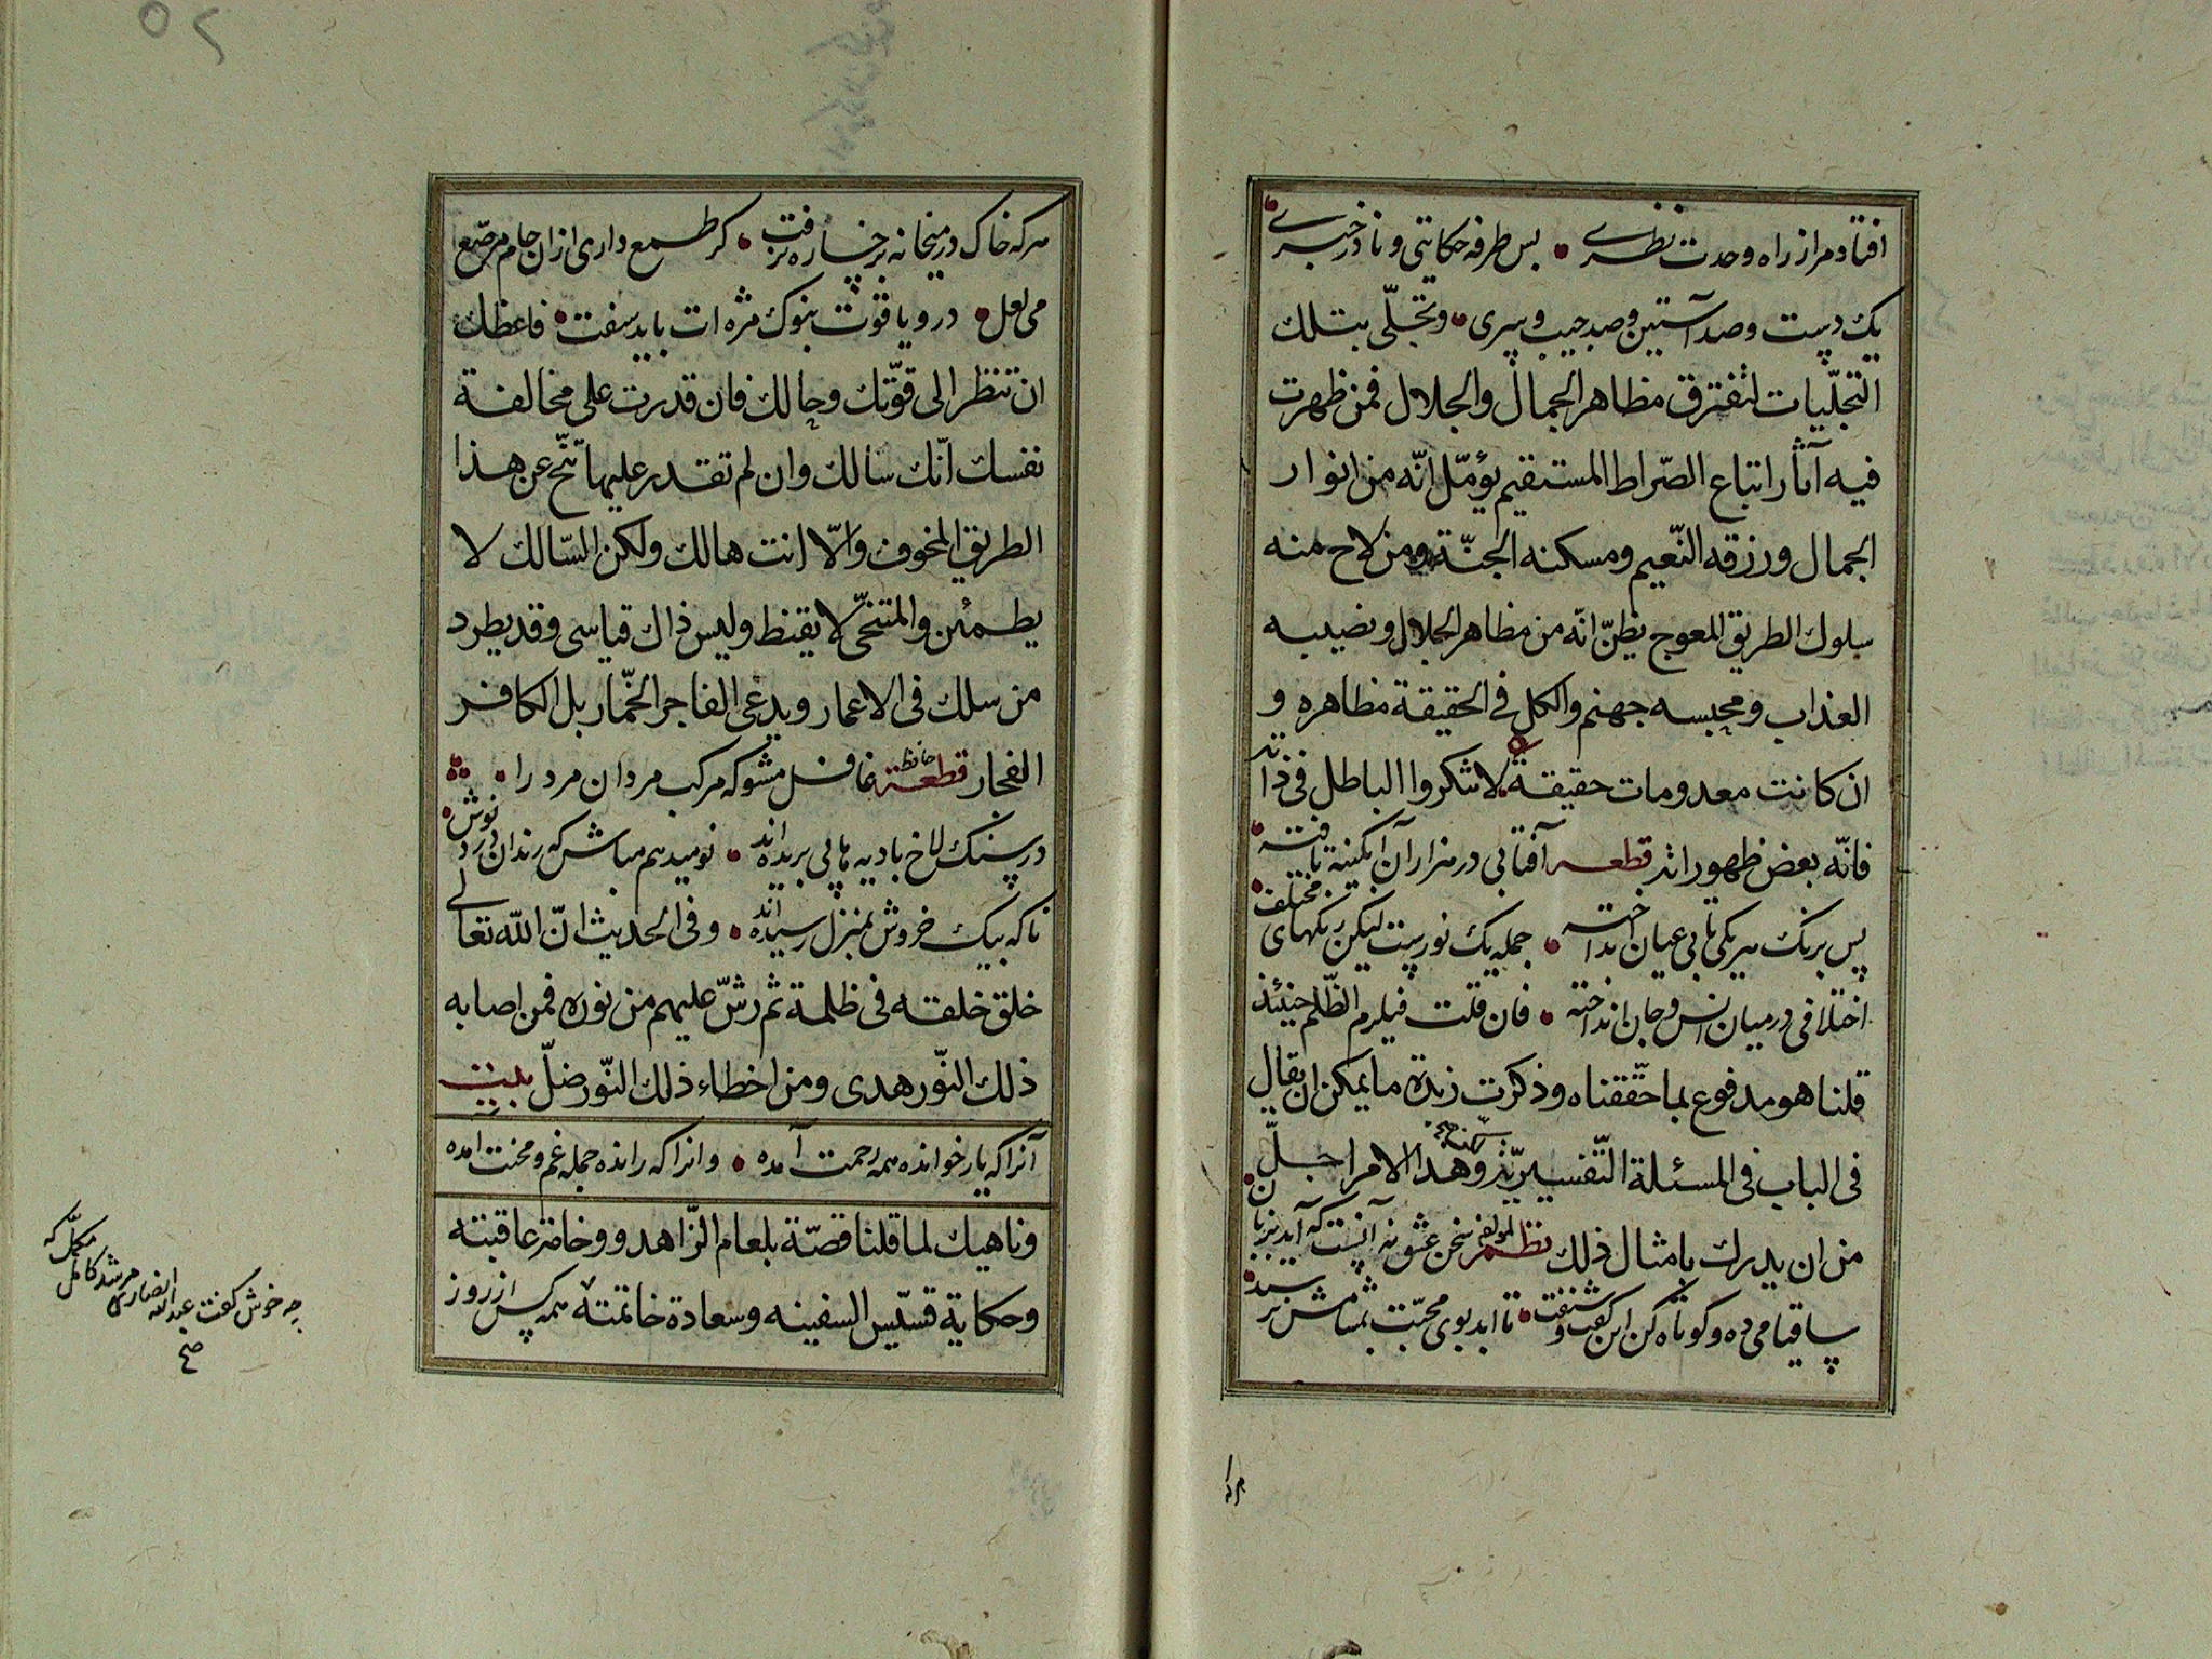 افتاد مرا ز راه وحدت نظری • بس طرفه حکایتی و نادر خبری
یك دست و صد آستین و صد جیب و سری • وتجلّی بتلك
التجلّیات لتفترق مظاهر الجمال والجلال فمن ظهرت
فیه آثار اتباع الصّراط المستقیم یؤمّل انّه من انوار
الجمال ورزقه النّعیم ومسکنه الجنّة ومن لاح منه
سلوك الطریق المعوج یظنّ انّه من مظاهر الجلال ونصیبه
العذاب ومحبسه جهنم والکل فی الحقیقة مظاهره و
ان کانت معدومات حقیقة لا تنکروا الباطل فی ذاته
فانّه بعض ظهوراته قطعه آفتابی در هزاران آبکینه تافته
پس برنك هریکی تابی عیان انداخته • جمله یك نورست لیکن رنکهای مختلف
اختلافی در میان انس و جان انداخته • فان قلت فیلزم الظّلم حینئذ
قلنا هو مدفوع بما حقّقناه وذکرت زبدة ما یمکن ان یقال
فی الباب فی المسئلة التّفسیریّة وهذا الامر اجلّ
من ان یدرك بامثال ذلك نظم لمولفه سخن عشق نه آنست که آید بزبان
ساقیا می ده و کوتاه کن این کفت و شنفت • تا ابد بوی محبّت بمشامش نرسد
هرکه خاك در میخانه برخساره نرفت • کر طمع داری ازان جام مرصّع
می لعل • در و یاقوت بنوك مژه ات باید سفت • فاعظك
ان تنظر الی قوّتك وحالك فان قدرت علی مخالفة
نفسك انّك سالك وان لم تقدر علیها تنحّ عن هذا
الطریق المخوف والّا انت هالك ولکن السّالك لا
یطمئن والمتنحّی لا یقنط ولیس ذاك قیاسی وقد یطرد
من سلك فی الاعمار ویدعی الفاجر الخمّار بل الکافر
الفجار قطعة حافظ غافل مشو که مرکب مردان مرد را •
در سنك لاخ بادیه پاپی بریده اند • نومید هم مباش که رندان درد نوش
ناکه بیك خروش بمنزل رسیده اند • وفی الحدیث انّ الله تعالی
خلق خلقه فی ظلمة ثم رشّ علیهم من نوره فمن اصابه
ذلك النّور هدی ومن اخطاء ذلك النّور ضلّ بیت
آنرا که یار خوانده همه رحمت آمده • وانرا که رانده جمله غم و محنت امده
وناهیك لما قلنا قصّة بلعام الزّاهد ووخامة عاقبته
وحکایة قسّیس السفینه وسعادة خاتمته همه کس از روز
چه خوش کفت عبدالله انصاری مرشد کامل مکمّل که
صح